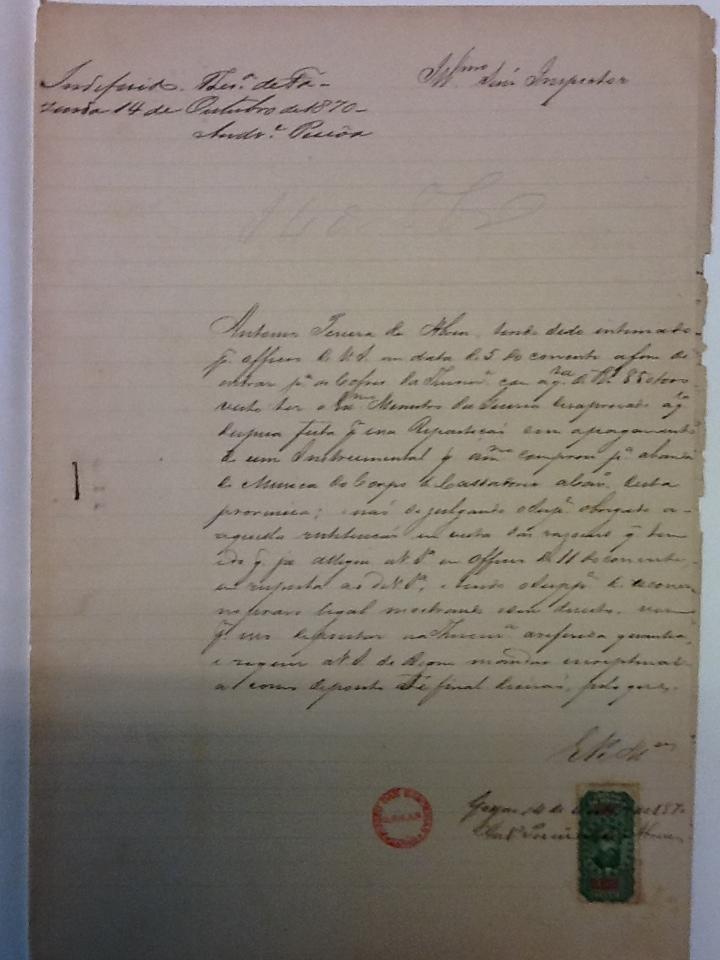 Indeferido. Thes.ª de Fa-
zenda 14 de Outubro de 1870-
Andr.ᵉ Pessôa
Ill.ᵐᵒ Snr̃ Inspector
Antonio Pereira de Abreu, tendo sido intimado
p.ʳ officio de V. S. em data de 5 do corrente afim de
entrar p.ª os Cofres da Thesour.ª com a q.ᵗⁱᵃ de
visto ter o Ex.ᵐᵒ Ministro da Guerra desaprovado a q.ᵗⁱᵃ
despesa feita p.ʳ essa Repartição em o pagamento
de um Instrumental q̃ comprou p.ª a banda
de Musica do Corpo de Cassadores desta
provincia; não se julgando o Supp.ᵉ obrigado a
aquella restituição em vista das razões q̃ tem
e q̃ ja allegou a V. S.ª em officio de 11 do corrente,
em resposta ao de V. S.ª, e tendo o Supp.ᵉ de recorrer
no praso legal mostrando seu direito, vem
p.ʳ isso depositar na Thesour.ª a referida quantia,
e requer a V. S. se digne mandar
a como deposito até final decisão, pelo que
E. R. M.ᶜᵉ
Goyaz, 14 de de 1870
Ant.º Pereira de Abreu